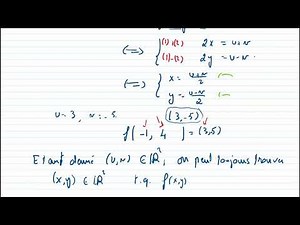 ⟺ { (1)+(2) 2x = u+v
(1)-(2) 2y = u-v
⟺ { x = u+v/2
y = u-v/2
u=3, v=-5 (3,-5)
f(-1, 4) = (3,5)
Etant donné (u,v) ∈ ℝ², on peut toujours trouver
(x,y) ∈ ℝ² t.q. f(x,y)